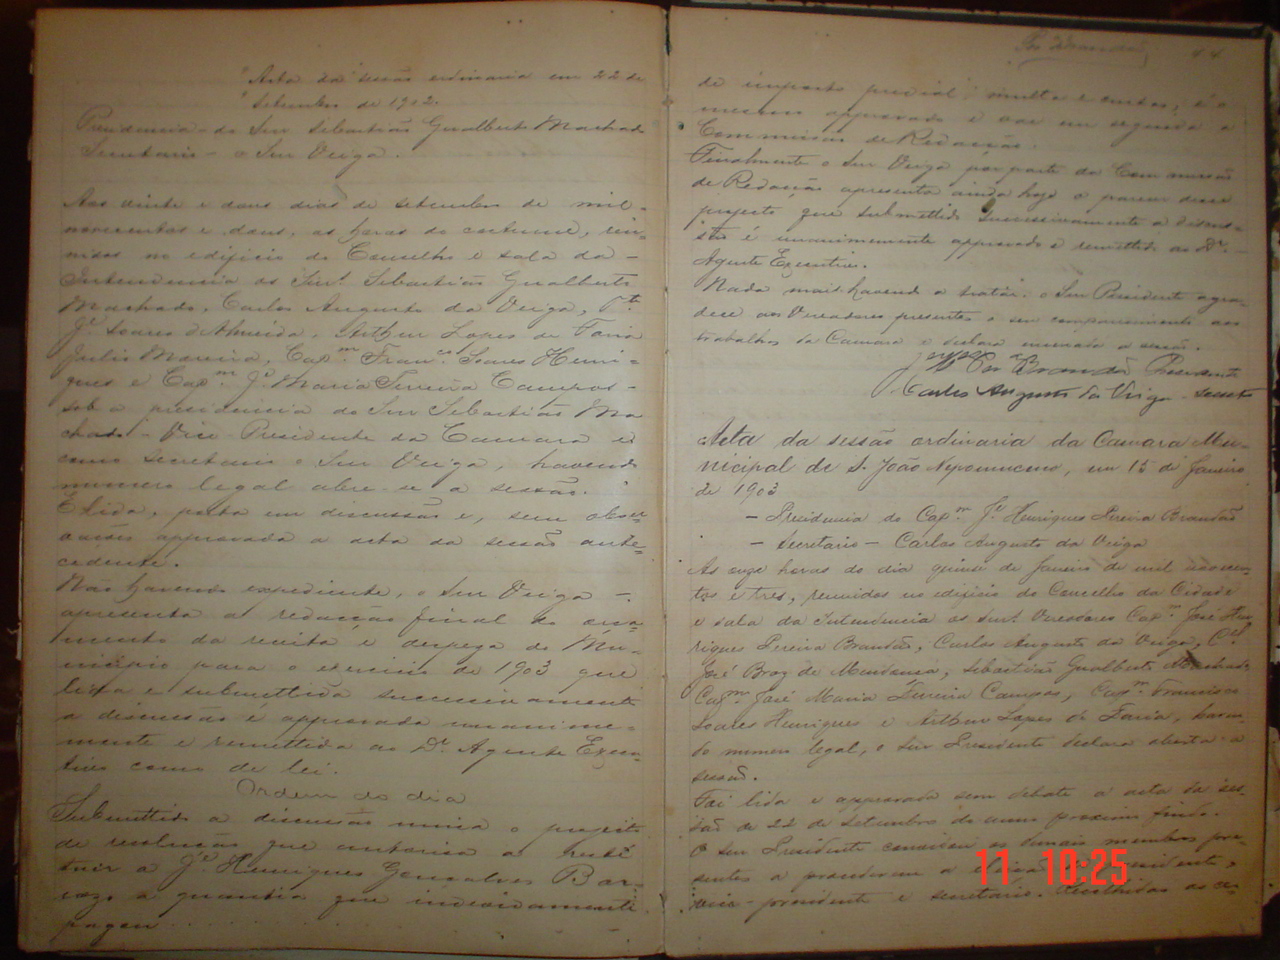 Acta da sessão ordinaria em 22 de
Setembro de 1902.
Presidencia do Snr Sebastião Gualberto Machado
Secretario - o Snr Veiga.
Aos vinte e dous dias de setembro de mil
novecentos e dous, as horas do costume, reu-
nidos no edificio do Conselho e sala da -
Intendencia os Snrs Sebastião Gualberto
Machado, Carlos Augusto da Veiga, Pe
Je Soares d'Almeida, Arthur Lopes de Faria
Julio Moreira, Capm Franco Soares Henri-
ques e Capm Je Maria Ferreira Campos -
sob a presidencia do Snr Sebastião Ma
chado - Vice Presidente da Camara e
como secretario o Snr Veiga, havendo
numero legal abre-se a sessão.
É lida, posta em discussão e, sem obser-
vações approvada a acta da sessão ante-
cedente.
Não havendo expediente, o Snr Veiga -
apresenta a redacção final do orça-
mento da receita e despeza do Mu-
nicipio para o exercicio de 1903 que
lida e submettida successivamente
a discussão é approvada unanime-
mente e remettida ao Dr Agente Execu-
tivo como de lei.
Ordem do dia
Submettido a discussão unica o projecto
de resolução que autorisa a resti
tuir a Je Henriques Gonçalves Bar-
a quantia que indevidamente
pagou
44
de imposto predial, multa e custas, é o
mesmo approvado e vae em seguida a
Commissão de Redacção.
Finalmente o Snr Veiga por parte da Commissão
de Redacção apresenta ainda hoje o parecer desse
projecto que submettido successivamente a discus-
são é unanimemente approvado e remettido ao Dr -
Agente Executivo.
Nada mais havendo a tratar, o Snr Presidente agra-
dece aos Vereadores presentes o seu comparecimento aos
trabalhos da Camara e declara encerrada a sessão.
Brandão Presidente
Carlos Augusto da Veiga - Secreto
Acta da sessão ordinaria da Camara Mu-
nicipal de S. João Nepomuceno, em 15 de Janeiro
de 1903
- Presidencia do Capm Je Henriques Pereira Brandão
- Secretario - Carlos Augusto da Veiga
As onze horas do dia quinse de Janeiro de mil novecen-
tos e tres, reunidos no edificio do Conselho da Cidade
e sala da Intendencia os Snrs Vereadores Capm José Hen-
riques Pereira Brandão, Carlos Augusto da Veiga, Cel
José Braz de Mendonça, Sebastião Gualberto Machado,
Capm José Maria Ferreira Campos, Capm Francisco
Soares Henriques e Arthur Lopes de Faria, haven-
do numero legal, o Snr Presidente declara aberta a
sessão.
Foi lida e approvada sem debate a acta da ses-
são de 22 de Setembro do anno proximo findo.
O Snr Presidente convidou os demais membros pre-
sentes a procederem a eleição do presidente,
vice-presidente e secretario. Recolhidas as ce-
11 10:25